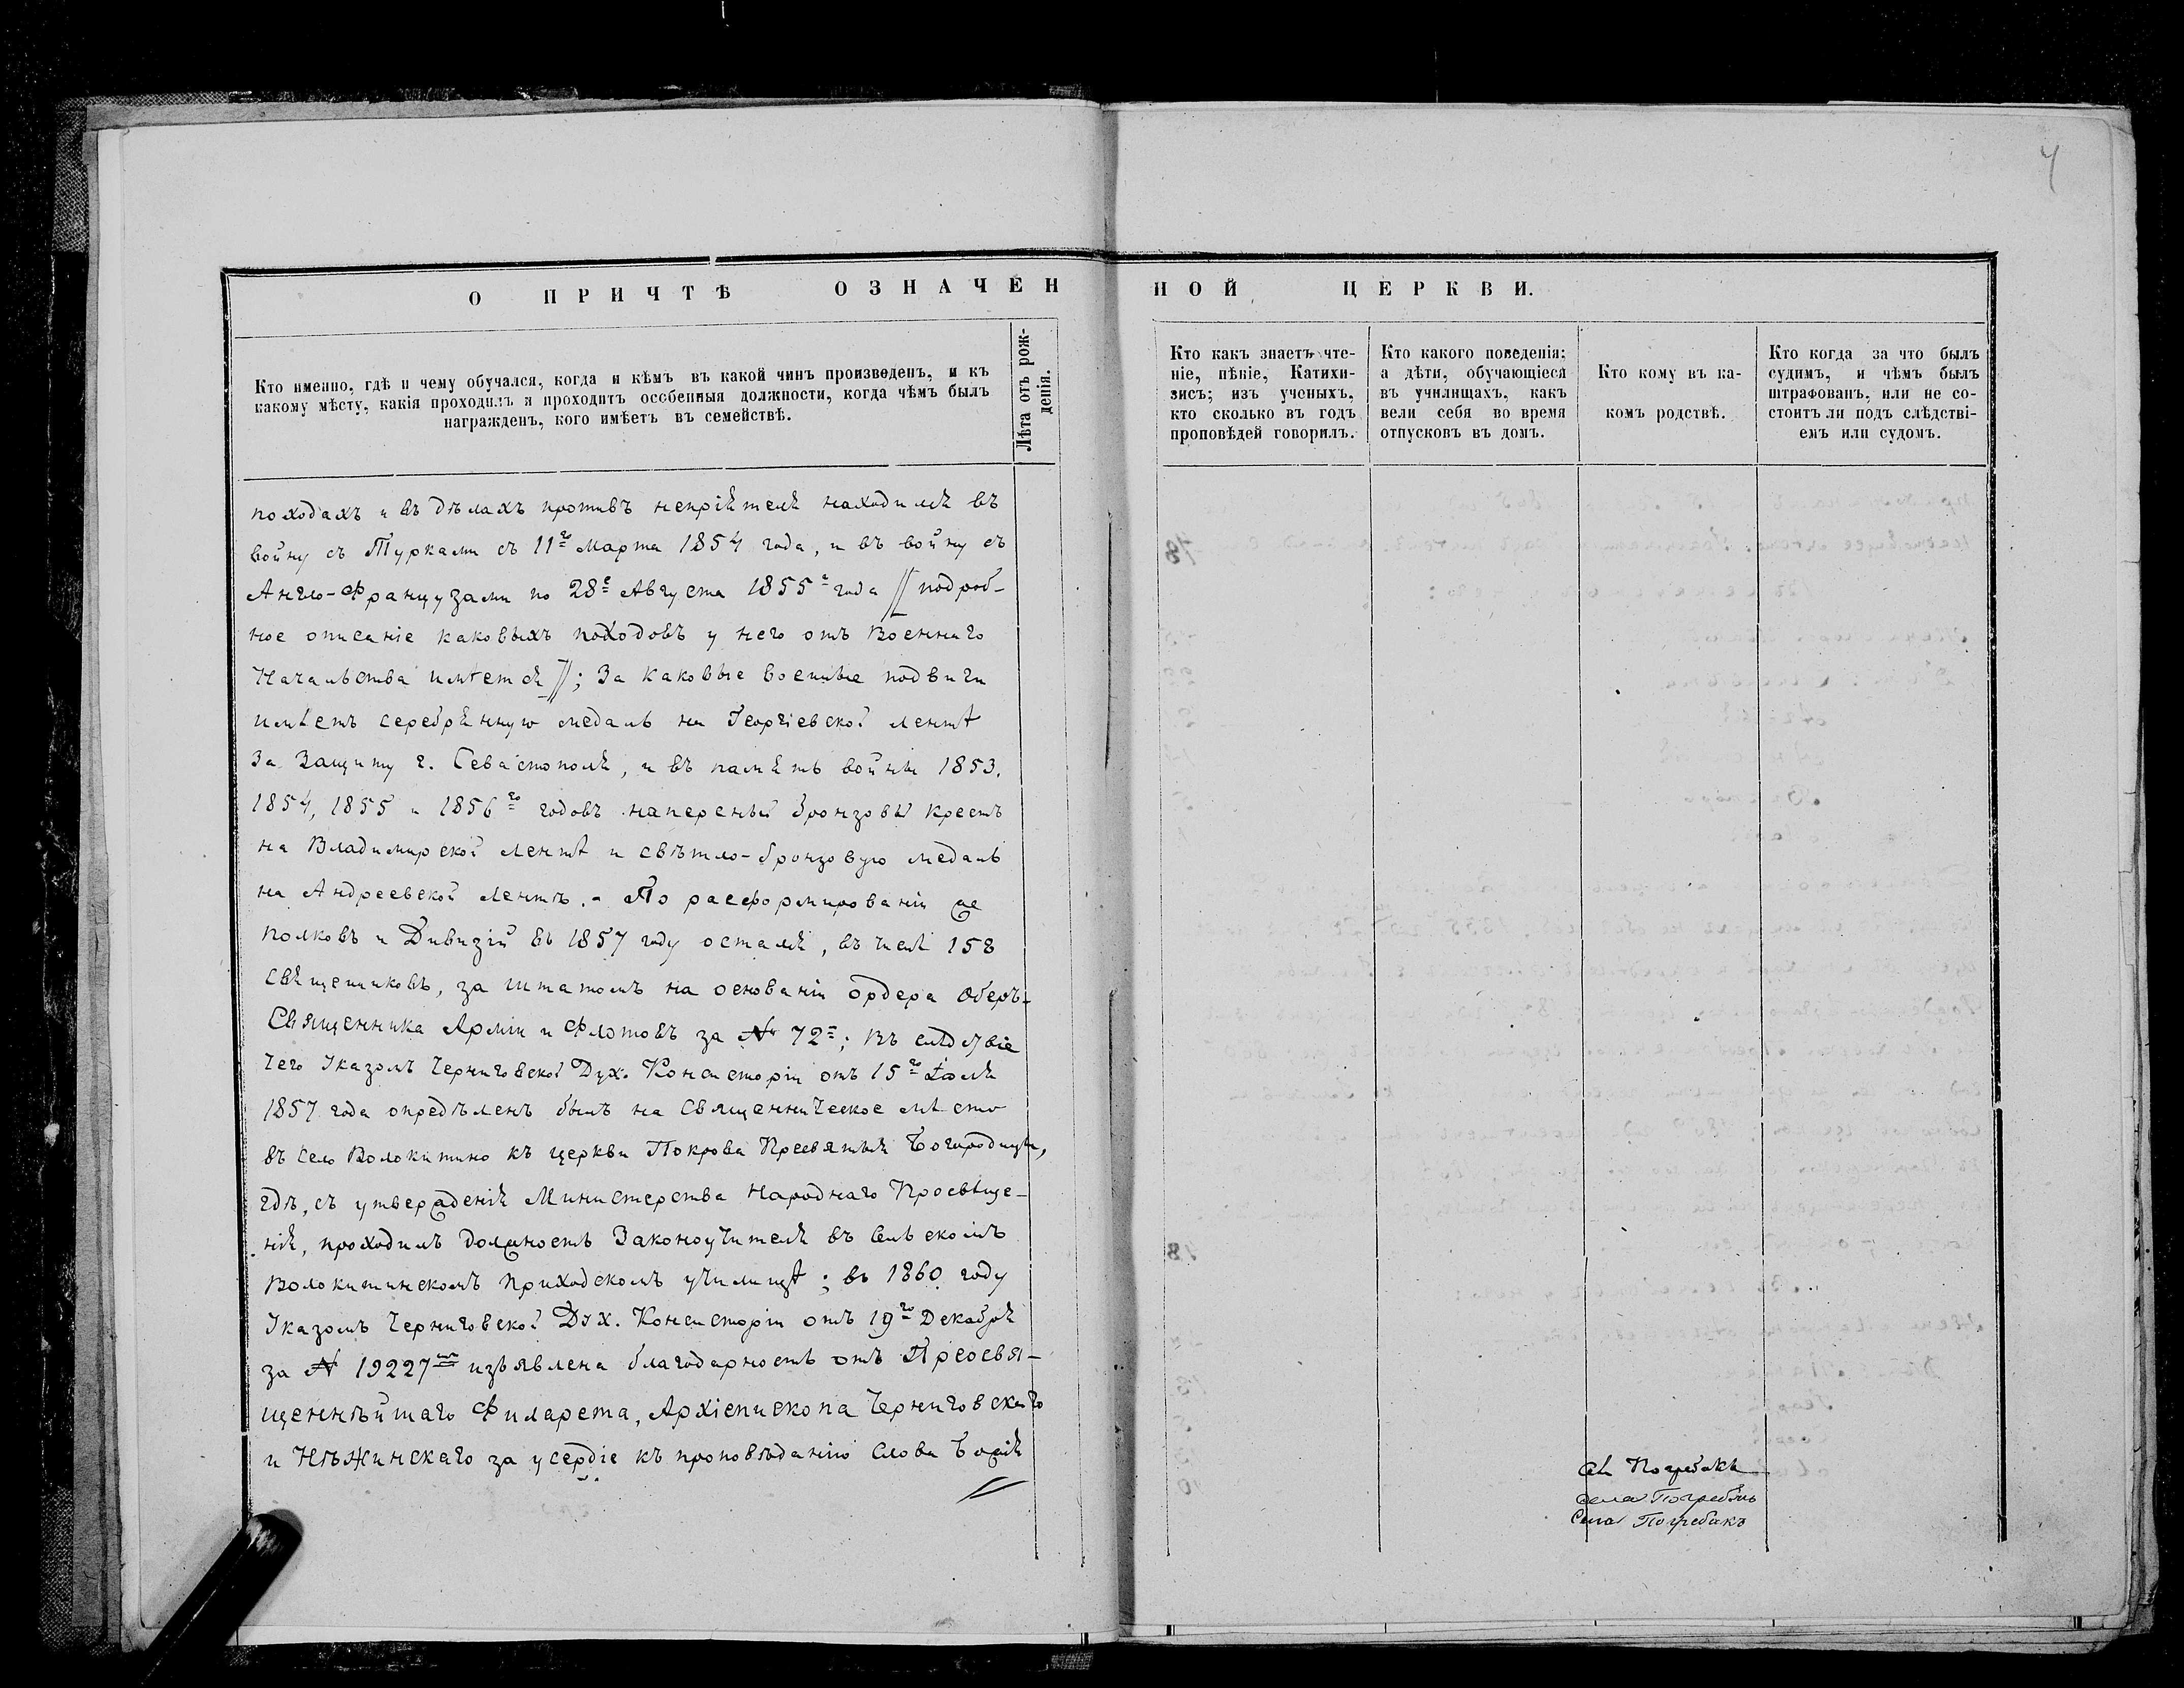 4
О ПРИЧТѢ ОЗНАЧЕННОЙ ЦЕРКВИ.
Кто именно, гдѣ и чему обучался, когда и кѣмъ въ какой чинъ произведенъ, и къ
какому мѣсту, какія проходилъ и проходитъ особенныя должности, когда чѣмъ былъ
награжденъ, кого имѣетъ въ семействѣ.
Лѣта отъ рож-
денія.
Кто какъ знаетъ чте-
ніе, пѣніе, Катихи-
зисъ; изъ ученыхъ,
кто сколько въ годъ
проповѣдей говорилъ.
Кто какого поведенія;
а дѣти, обучающіеся
въ училищахъ, какъ
вели себя во время
отпусковъ въ домъ.
Кто кому въ ка-
комъ родствѣ.
Кто когда за что былъ
судимъ, и чѣмъ былъ
штрафованъ, или не со-
стоитъ ли подъ слѣдстві-
емъ или судомъ.
походахъ и въ дѣлахъ противъ непріятеля находился въ
войну съ Турками съ 11го Марта 1854 года, и въ войну съ
Англо-Французами по 28е Августа 1855г года // подроб-
ное описаніе каковыхъ походовъ у него отъ Военнаго
Начальства имѣется //; За каковые военные подвиги
имѣетъ серебрянную медаль на Георгіевской лентѣ
За Защиту г. Севастополя, и въ память войны 1853.
1854, 1855 и 1856го годовъ наперсный бронзовый крестъ
на Владимирской лентѣ и свѣтло-бронзовую медаль
на Андреевской лентѣ. - По расформированіи же
полковъ и Дивизій въ 1857 году остался, въ числѣ 158
Священниковъ, за штатомъ на основаніи ордера Оберъ-
Священника Арміи и Флотовъ за № 72=; Въ слѣдствіе
чего Указомъ Черниговской Дух. Консисторіи отъ 15го Іюля
1857 года опредѣленъ былъ на Священническое мѣсто
въ село Волокитино къ церкви Покрова Пресвятыя Богородицы,
гдѣ, съ утвержденія Министерства Народнаго Просвѣще-
нія, проходилъ должность Законоучителя въ Сельскомъ
Волокитинскомъ приходскомъ училищѣ; въ 1860 году
Указомъ Черниговской Дух. Консисторіи отъ 19го Декабря
за № 19227мъ изъявлена благодарность отъ Преосвя-
щеннѣйшаго Филарета, Архіепископа Черниговскаго
и Нѣжинскаго за усердіе къ проповѣданію Слова Божія
Погребокъ
Села Погребокъ
Села Погребокъ